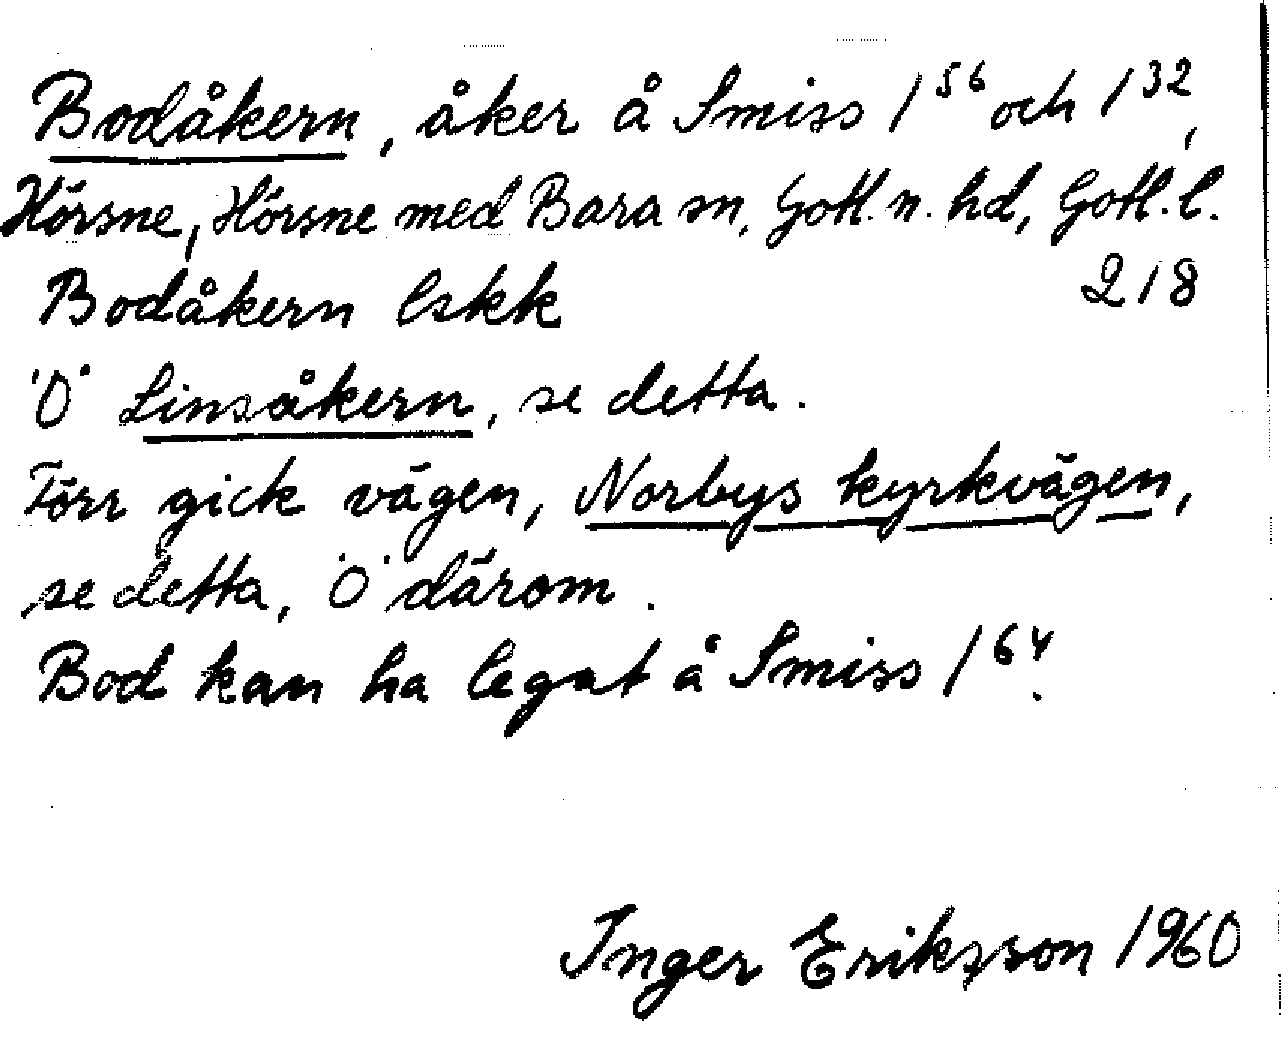 Bodåkern, åker å Smiss 1⁵⁶ och 1³²,
Hörsne, Hörsne med Bara sn, Gotl. n. hd, Gotl. l.
Bodåkern lskk 218
Ö Linsåkern, se detta.
Förr gick vägen, Norbys kyrkvägen,
se detta, Ö därom.
Bod kan ha legat å Smiss 1⁶⁴.
Inger Eriksson 1960